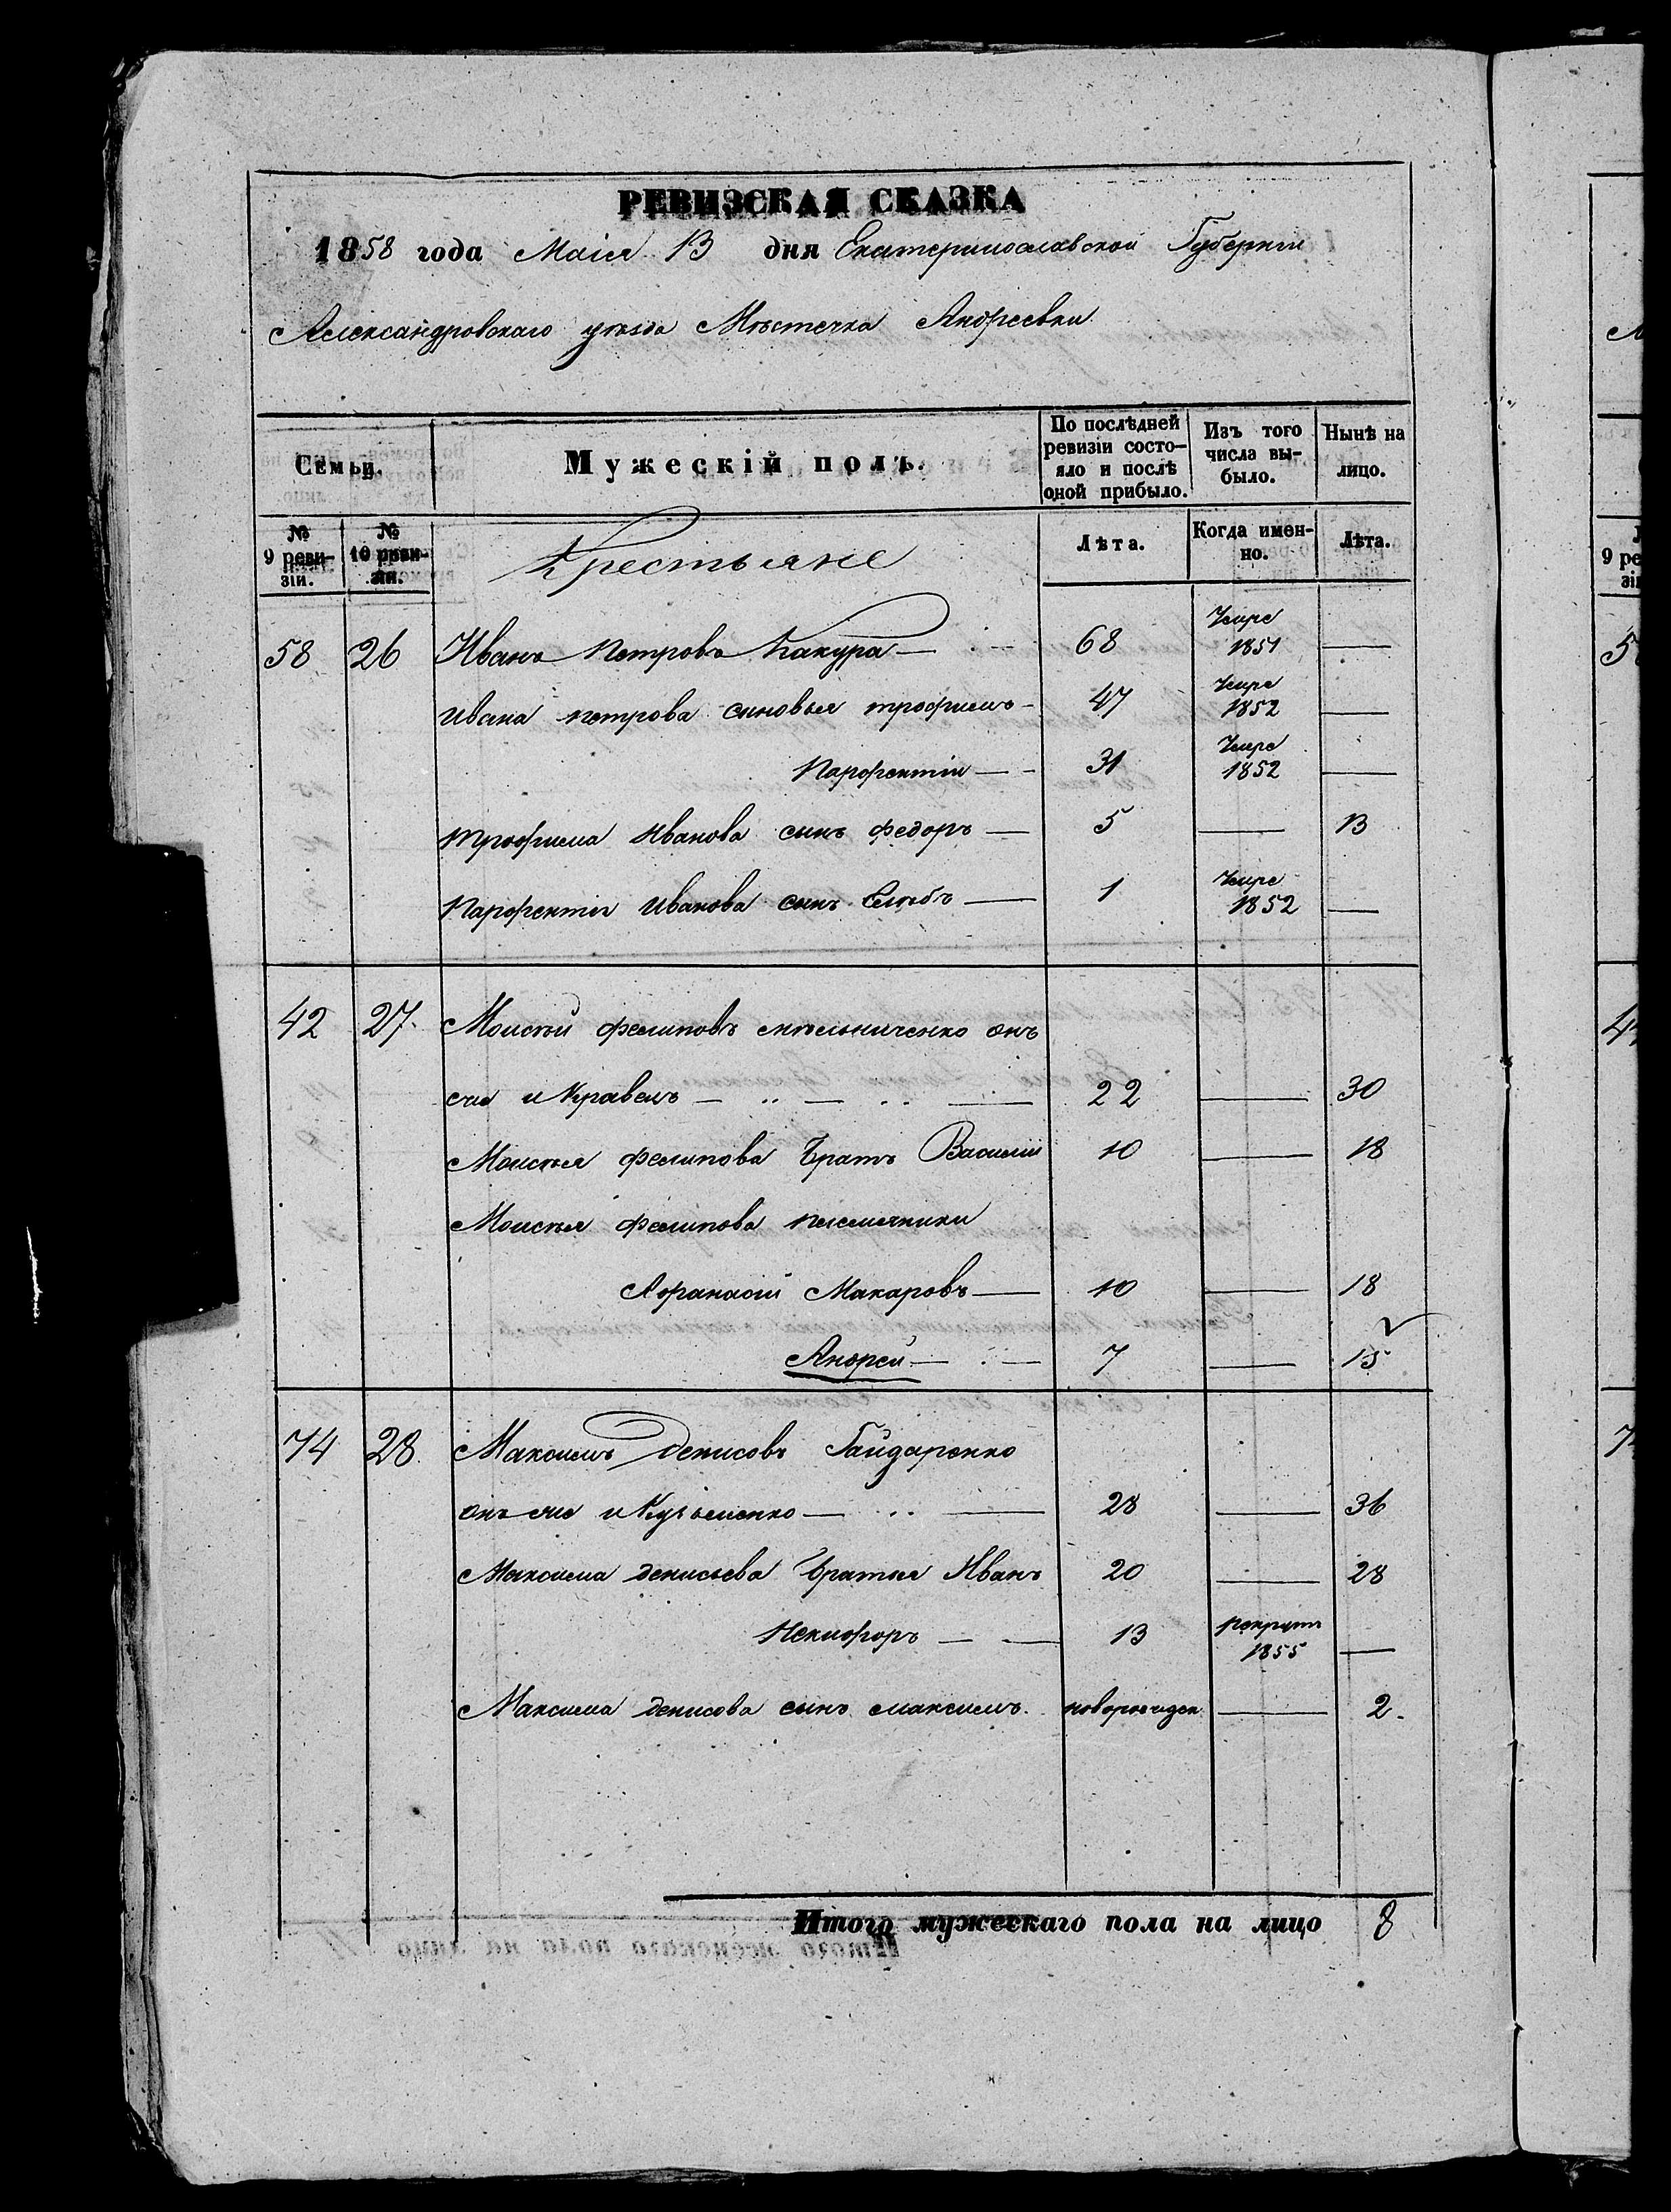 РЕВИЗСКАЯ СКАЗКА
1858 года Маія 13 дня Екатеринославской Губерніи
Александровскаго уѣзда Мѣстечка Андреевки
Семьи.
Мужескій полъ.
По послѣдней ревизіи состо-
яло и послѣ
оной прибыло.
Изъ того
числа вы-
было.
Нынѣ на
лицо.
№
9 реви-
зіи.
№
10 реви-
зіи.
Крестьяне
Лѣта.
Когда имен-
но.
Лѣта.
58 26 Иванъ Петровъ Какура — 68 умре 1851 —
Ивана петрова сыновья трофимъ — 47 умре 1852 —
Парфентіи — 31 умре 1852 —
трофима Иванова сынъ федоръ — 5 — 13
Парфентія Иванова сынъ — 1 умре 1852 —
42 27. Моисѣй филиповъ онъ
же и Кравецъ — 22 — 30
Моисѣя филипова Братъ Василій 10 — 18
Моисѣя филипова племянники
Афанасій Макаровъ — 10 — 18
Андрей — 7 — 15
74 28. Максимъ Денисовъ Гайдаренко
онъ же и Кузьменко — 28 — 36
Максима денисова братья Иванъ 20 — 28
Никифоръ — 13 рекрутъ 1855 —
Максима денисова сынъ максимъ. новорожден — 2.
Итого мужескаго пола на лицо 8